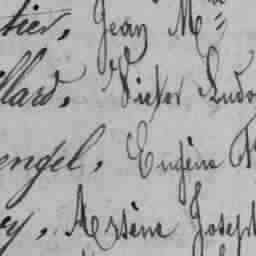 tier, Jean M
llard, Victor Ludo
engel, Eugène
ey, Arsène Joseph